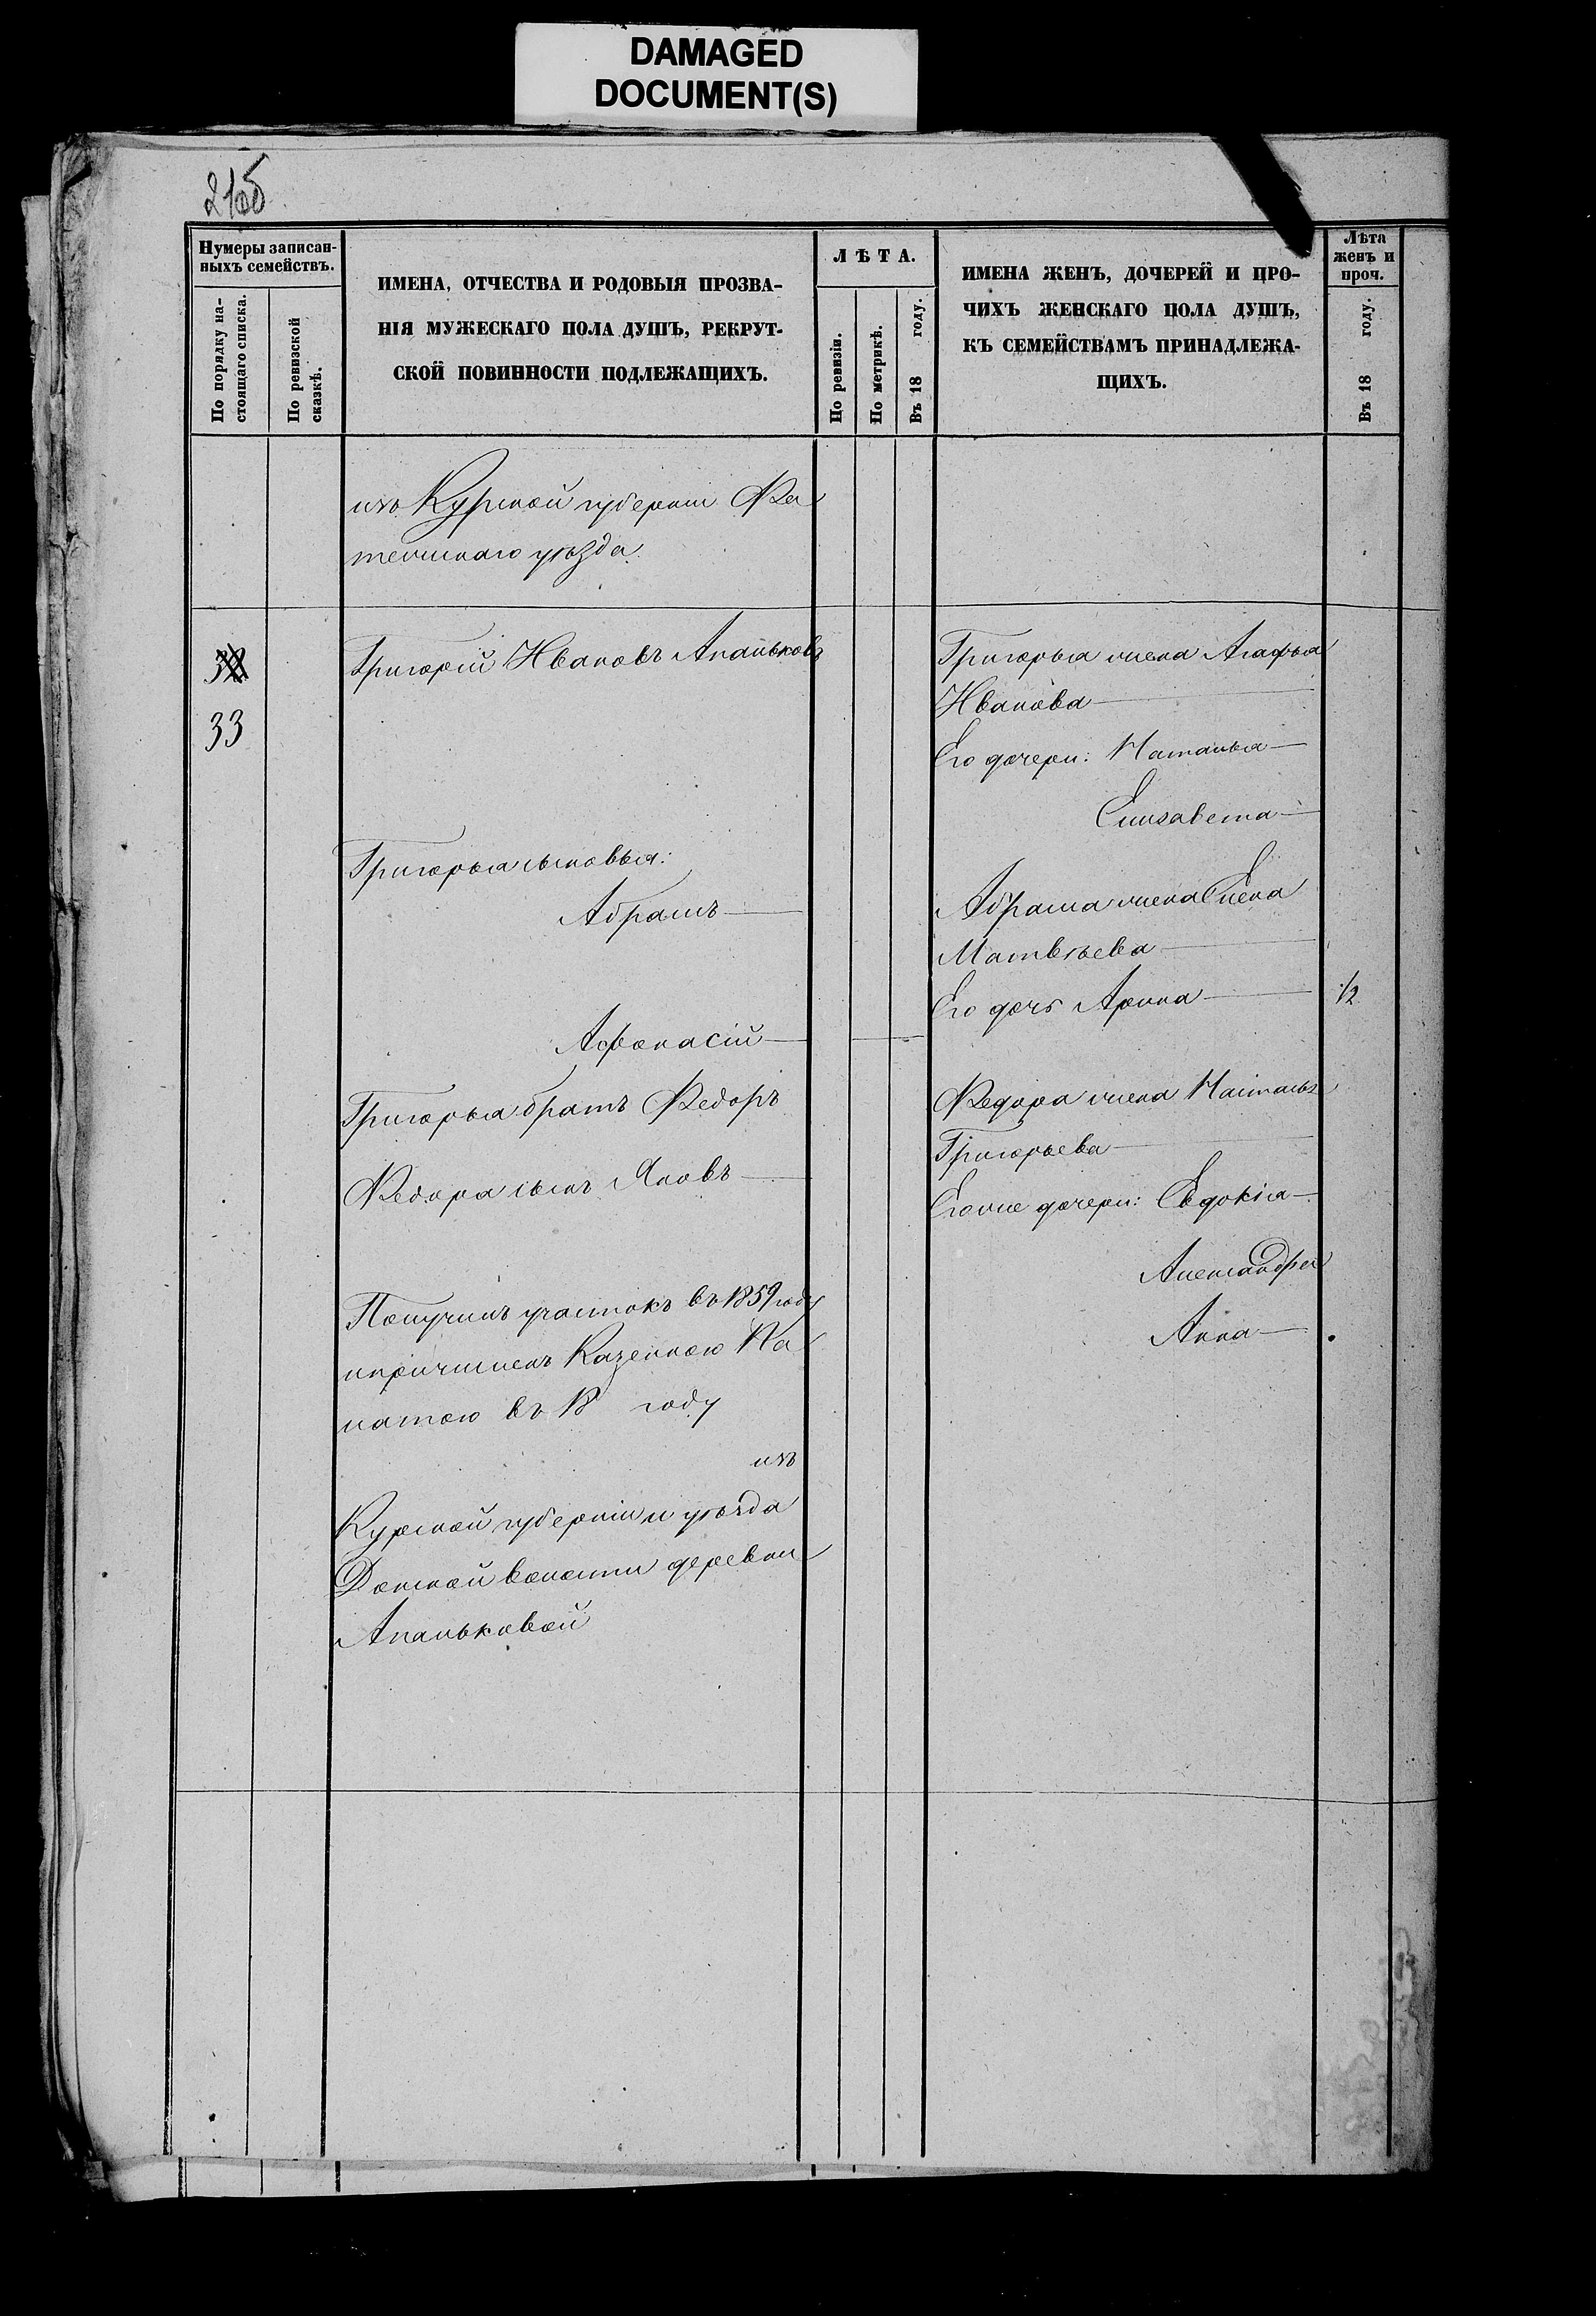 DAMAGED
DOCUMENT(S)
Нумеры записан-
ныхъ семействъ.
По порядку на-
стоящаго списка.
По ревизской
сказкѣ.
ИМЕНА, ОТЧЕСТВА И РОДОВЫЯ ПРОЗВА-
НІЯ МУЖЕСКАГО ПОЛА ДУШЪ, РЕКРУТ-
СКОЙ ПОВИННОСТИ ПОДЛЕЖАЩИХЪ.
ЛѢТА.
По ревизіи.
По метрикѣ.
Въ 18 году.
ИМЕНА ЖЕНЪ, ДОЧЕРЕЙ И ПРО-
ЧИХЪ ЖЕНСКАГО ПОЛА ДУШЪ,
КЪ СЕМЕЙСТВАМЪ ПРИНАДЛЕЖА-
ЩИХЪ.
Лѣта
женъ и
проч.
Въ 18 году.
изъ Курской губерніи Фа
тежскаго уѣзда.
33
Григорій Ивановъ Апальковъ
Григорья сыновья:
Абрамъ
Афонасій
Григорья братъ Федоръ
Федора сынъ Яковъ
Получилъ участокъ въ 1859 году
и причисленъ Казенною Па
латою въ 18 году
изъ
Курской губерніи и уѣзда
Донской волости деревни
Апальковой
Григорья жена Агафья
Иванова
Его дочери: Наталья
Елизавета
Абрама жена Елена
Матвѣева
Его дочь Арина
1/2
Федора жена Наталья
Григорьева
Его же дочери: Евдокія
Александра
Анна